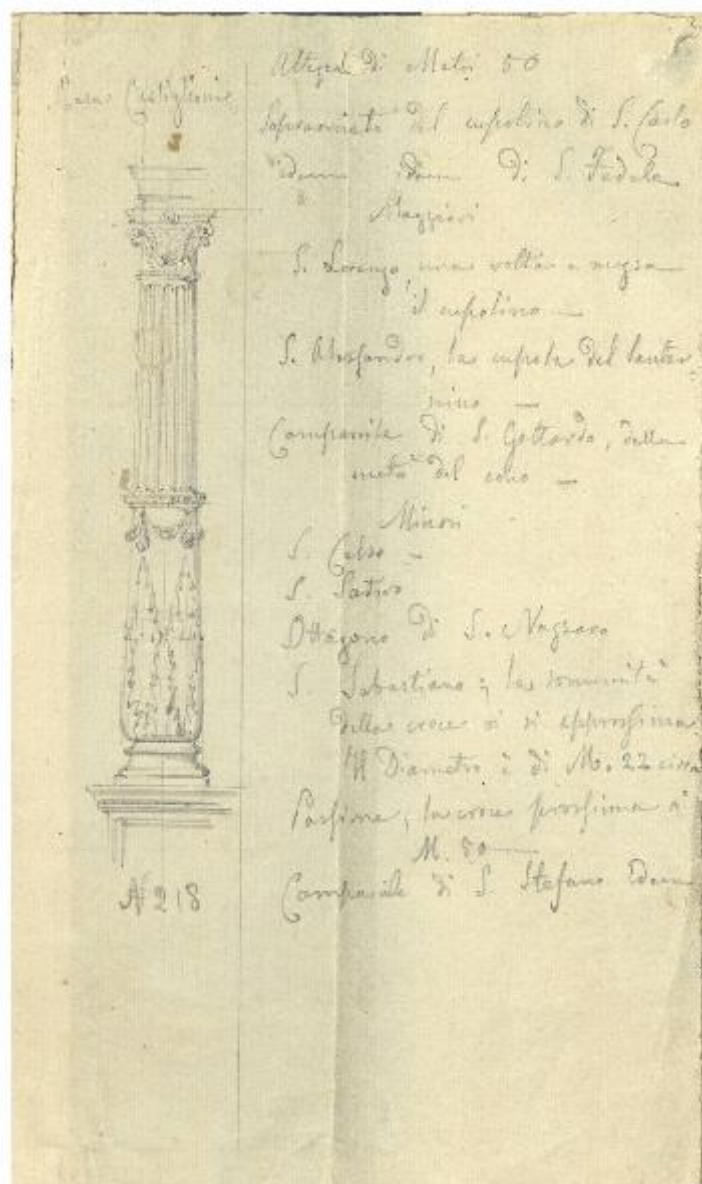 Casa Castiglioni
Altezza di Metri 50
Sopraornato del cupolino di S. Carlo
idem idem di S. Fedele
Maggiori
S. Lorenzo, una volta e mezza
il cupolino —
S. Alessandro, la cupola del lanter-
nino —
Campanile di S. Gottardo, della
metà del cono —
Minori
S. Celso —
S. Satiro
Ottagono di S. Nazzaro
S. Sebastiano; la sommità
della croce vi si approssima
Il Diametro è di M. 22 circa
Passione, la croce prossima a
M. 50 —
Campanile di S. Stefano Idem
N 218